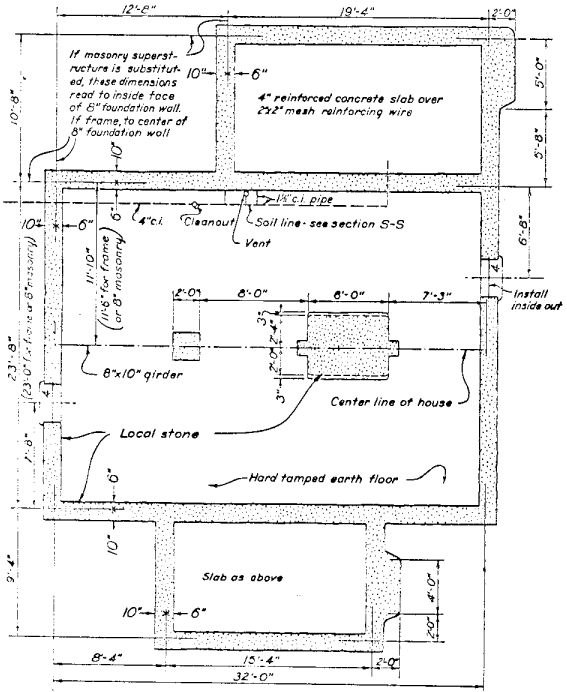 12'-8"
19'-4"
2'-0"
If masonry superst-
ructure is substitut-
ed, these dimensions
read to inside face
of 8" foundation wall.
If frame, to center of
8" foundation wall
10"
6"
4" reinforced concrete slab over
2"x2" mesh reinforcing wire
5'-0"
10'-8"
5'-8"
10"
6"
1½" c.i. pipe
4" c.i.
Cleanout
Soil line - see section S-S
Vent
6'-8"
10"
6"
11'-10"
(11'-6" for frame
or 8" masonry)
4
Install
inside out
2'-0"
8'-0"
8'-0"
7'-3"
3"
2'-4"
2'-0"
3"
23'-8"
(23'-0" for frame or 8" masonry)
8"x10" girder
Center line of house
4
7'-8"
Local stone
Hard tamped earth floor
6"
10"
9'-4"
Slab as above
4'-0"
10"
6"
2'-0"
8'-4"
15'-4"
2'-0"
32'-0"